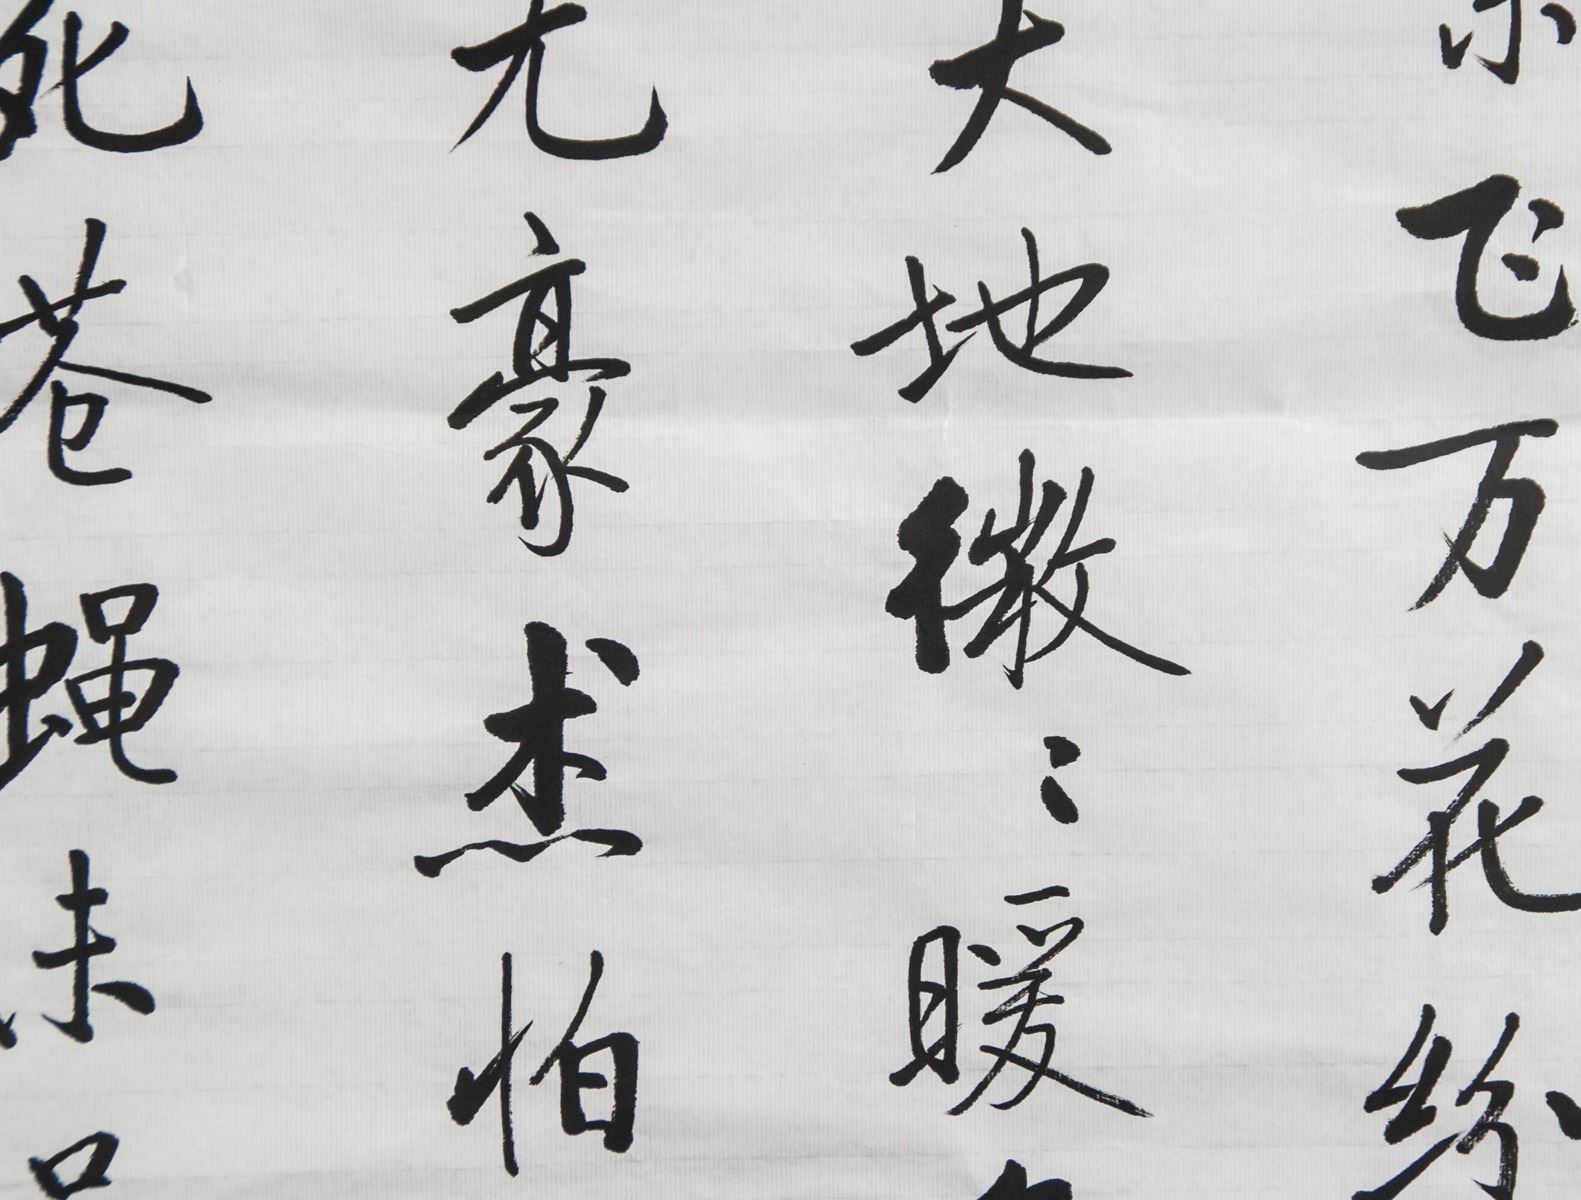 飞万花纷
大地微々暖
无豪杰怕
死苍蝇未